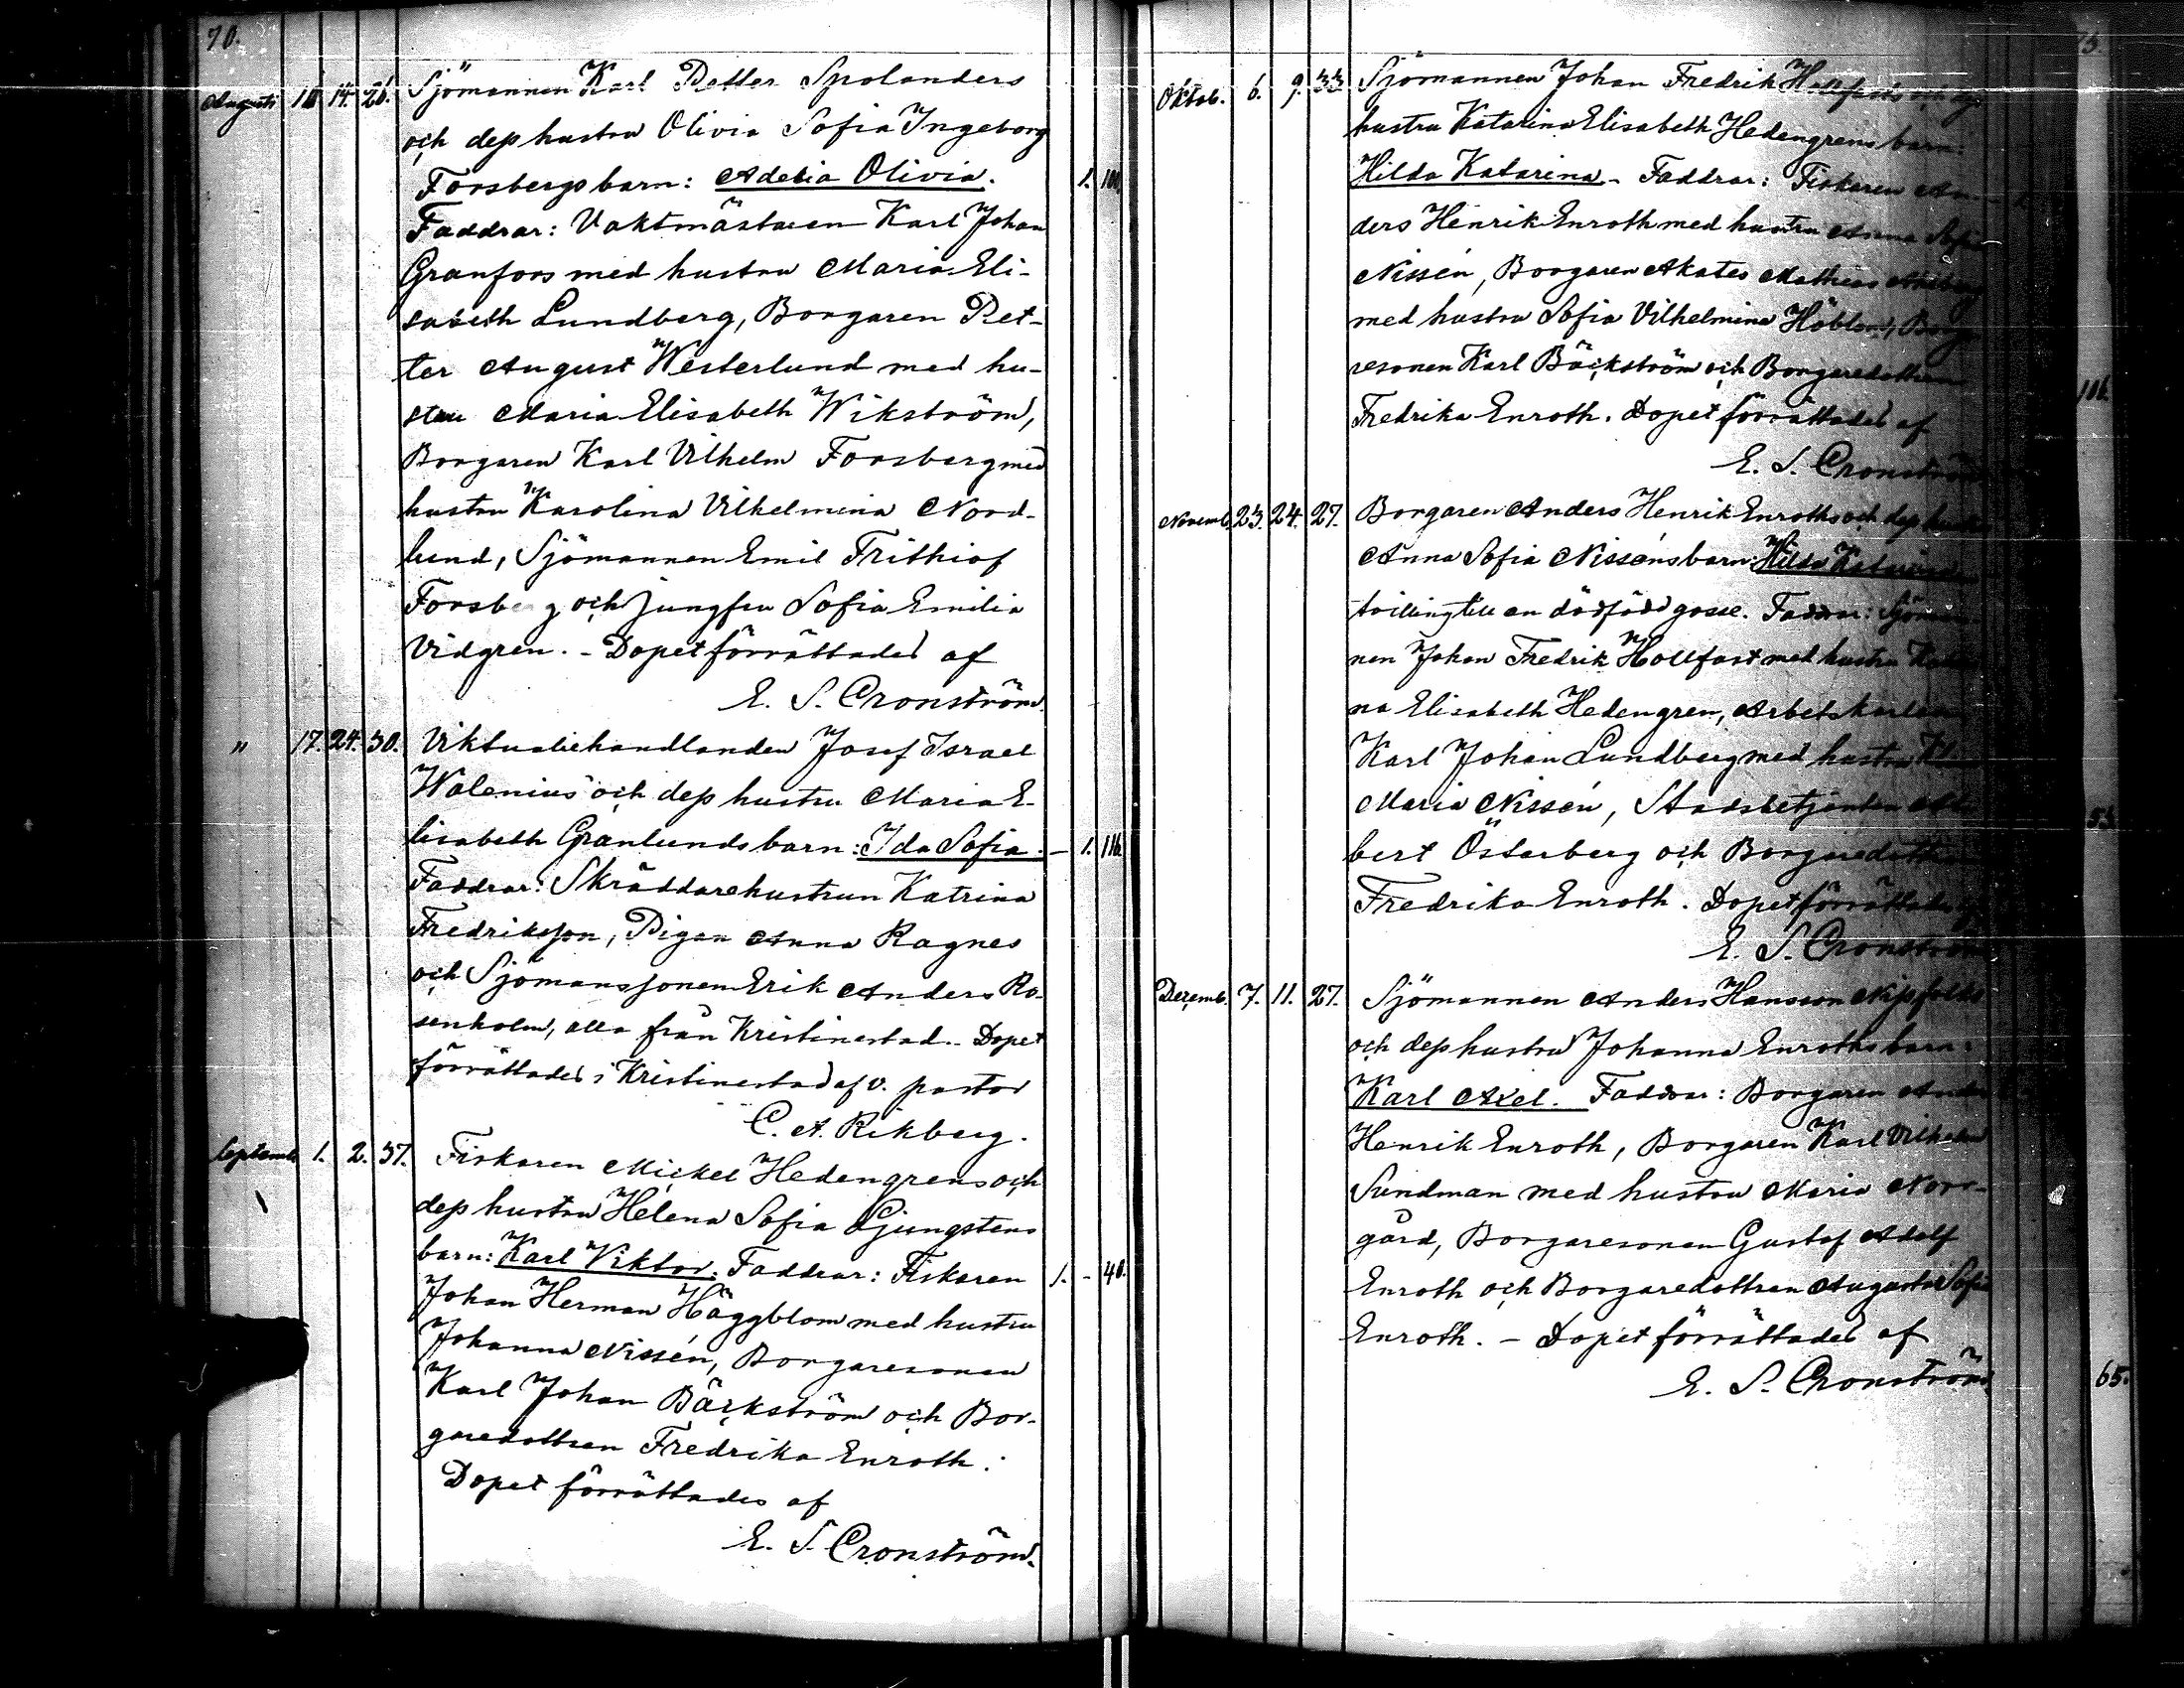 70.
Augusti 14. 26. Sjömannen Karl Petter Spolanders
och dess hustru Olivia Sofia Ingeborg
Forsbergs barn: Adelia Olivia. 1. 101.
Faddrar: Vaktmästaren Karl Johan
Granfors med hustru Maria Eli-
sabeth Lundberg, Borgaren Pet-
ter August Westerlund med hu-
stru Maria Elisabeth Wikström,
Borgaren Karl Vilhelm Forsberg med
hustru Karolina Vilhelmina Nord-
lund, Sjömannen Emil Frithiof
Forsberg och jungfru Sofia Emilia
Vidgren. - Dopet förrättades af
E. S. Cronström.
" 17. 24. 30. Viktualiehandlanden Josef Israel
Walenius och dess hustru Maria E-
lisabeth Granlunds barn: Ida Sofia. - 1. 116.
Faddrar: Skräddarehustrun Katrina
Fredriksson, Pigan Anna Ragnes
och Sjömanssonen Erik Anders Ro-
senholm, alla från Kristinestad. - Dopet
förrättades i Kristinestad af v. pastor
C. A. Rikberg.
Septemb. 1. 2. 37. Fiskaren Mickel Hedengrens och
dess hustru Helena Sofia Ljungstens
barn: Karl Viktor. Faddrar: Fiskaren 1. - 40.
Johan Herman Häggblom med hustru
Johanna Nissén, Borgaresonen
Karl Johan Bäckström och Bor-
garedottren Fredrika Enroth.
Dopet förrättades af
E. S. Cronström.
75.
Oktob. 6. 9. 33. Sjömannen Johan Fredrik Hollfasts och
hustru Katarina Elisabeth Hedengrens barn:
Hilda Katarina. - Faddrar: Fiskaren An-
ders Henrik Enroth med hustru Anna Sofia
Nissén, Borgaren Akates Mathias
med hustru Sofia Vilhelmina Höblom,
resonen Karl Bäckström och Borgaredottren
106.
Fredrika Enroth. Dopet förrättades af
E. S. Cronström
Novemb. 23. 24. 27. Borgaren Anders Henrik Enroths och dess
Anna Sofia Nisséns barn: Hilda Katarina
tvilling till en dödfödd gosse. Faddrar: Sjöman-
nen Johan Fredrik Hollfast med hustru
na Elisabeth Hedengren, Arbetskarlen
Karl Johan Lundberg med hustru
Maria Nissén, Stadsbetjenten
53.
bert Österberg och Borgaredottren
Fredrika Enroth. Dopet förrättades
E. S. Cronström
Dezemb. 7. 11. 27. Sjömannen Anders Hansson
och dess hustru Johanna Enroths barn:
Karl Axel. Faddrar: Borgaren Anders
Henrik Enroth, Borgaren Karl Vilhelm
Sundman med hustru Maria Norr-
gård, Borgaresonen Gustaf Adolf
Enroth och Borgaredottren Augusta Sofia
Enroth. - Dopet förrättades af
E. S. Cronström
65.